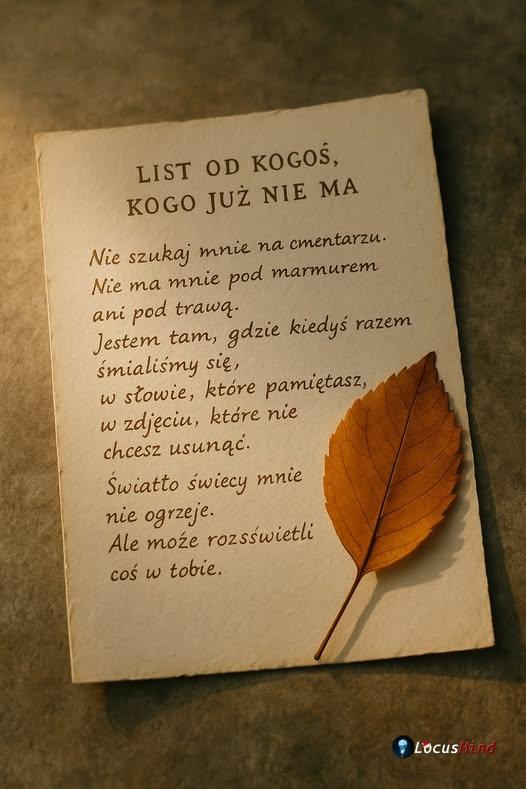 LIST OD KOGOŚ,
KOGO JUŻ NIE MA
Nie szukaj mnie na cmentarzu.
Nie ma mnie pod marmurem
ani pod trawą.
Jestem tam, gdzie kiedyś razem
śmialiśmy się,
w słowie, które pamiętasz,
w zdjęciu, które nie
chcesz usunąć.
Światło świecy mnie
nie ogrzeje.
Ale może rozsświetli
coś w tobie.
LocusMind